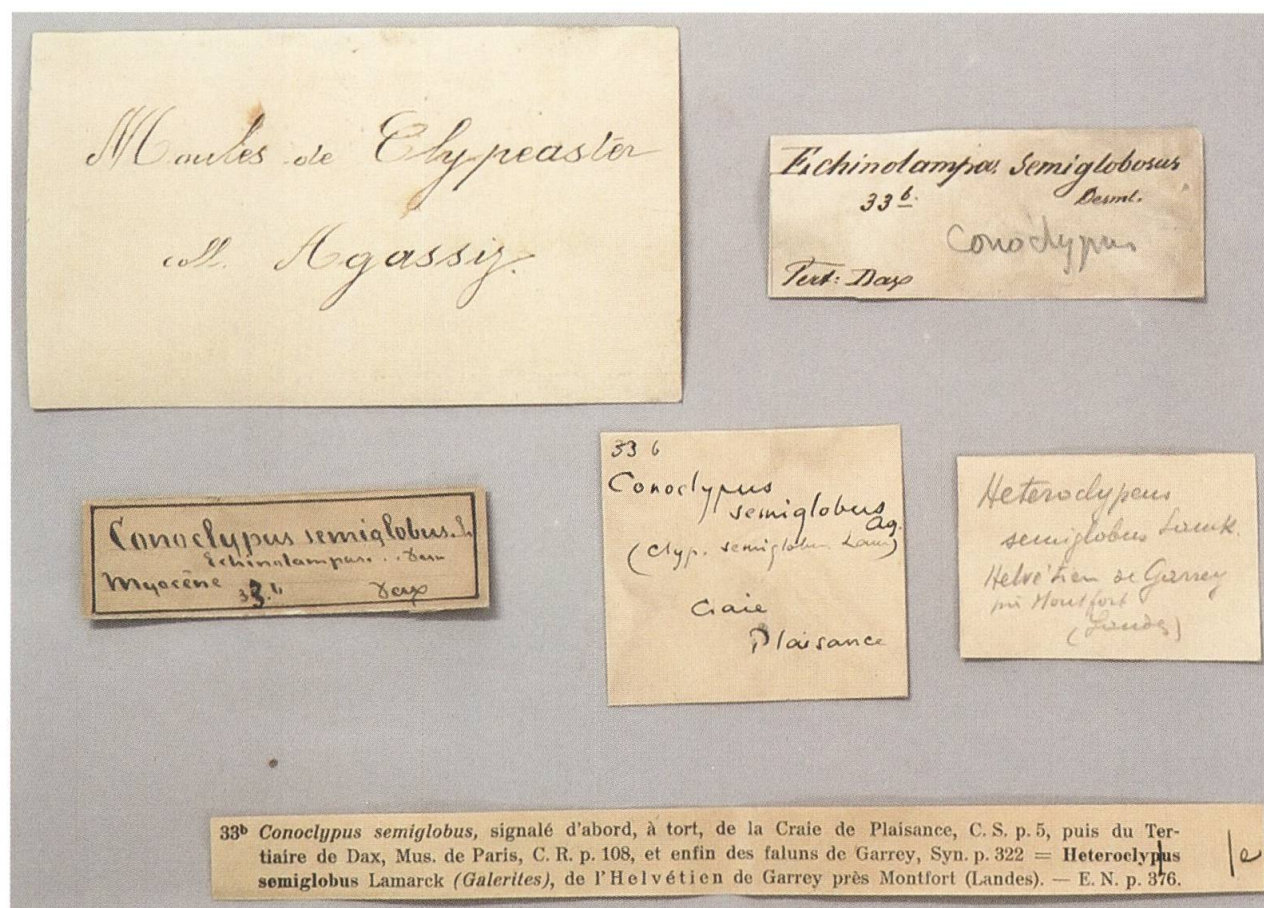 Moules de Clypeaster
coll. Agassiz.
Echinolampas semiglobosus
33 b. Desml.
Conoclypus
Tert: Dax
Conoclypus semiglobus. L
Echinolampas. . Desm
Myocène 33.b Dax
33 b
Conoclypus
semiglobus
Ag.
(Clyp. semiglobus Lam)
Craie
Plaisance
Heteroclypeus
semiglobus Lamk.
Helvétien de Garrey
près Montfort
(Landes)
33ᵇ Conoclypus semiglobus, signalé d'abord, à tort, de la Craie de Plaisance, C. S. p. 5, puis du Ter-
tiaire de Dax, Mus. de Paris, C. R. p. 108, et enfin des faluns de Garrey, Syn. p. 322 = Heteroclypus
semiglobus Lamarck (Galerites), de l'Helvétien de Garrey près Montfort (Landes). — E. N. p. 376.
|e